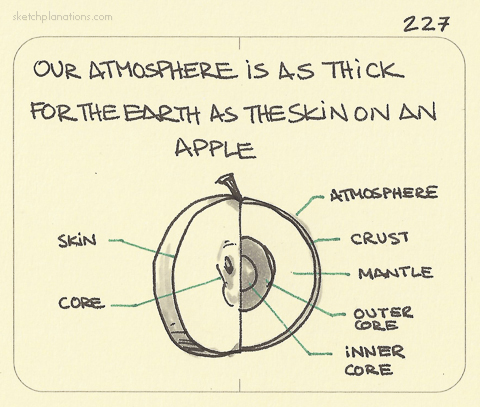 sketchplanations.com
227
OUR ATMOSPHERE IS AS THICK
FOR THE EARTH AS THE SKIN ON AN
APPLE
ATMOSPHERE
SKIN
CRUST
MANTLE
CORE
OUTER
CORE
INNER
CORE